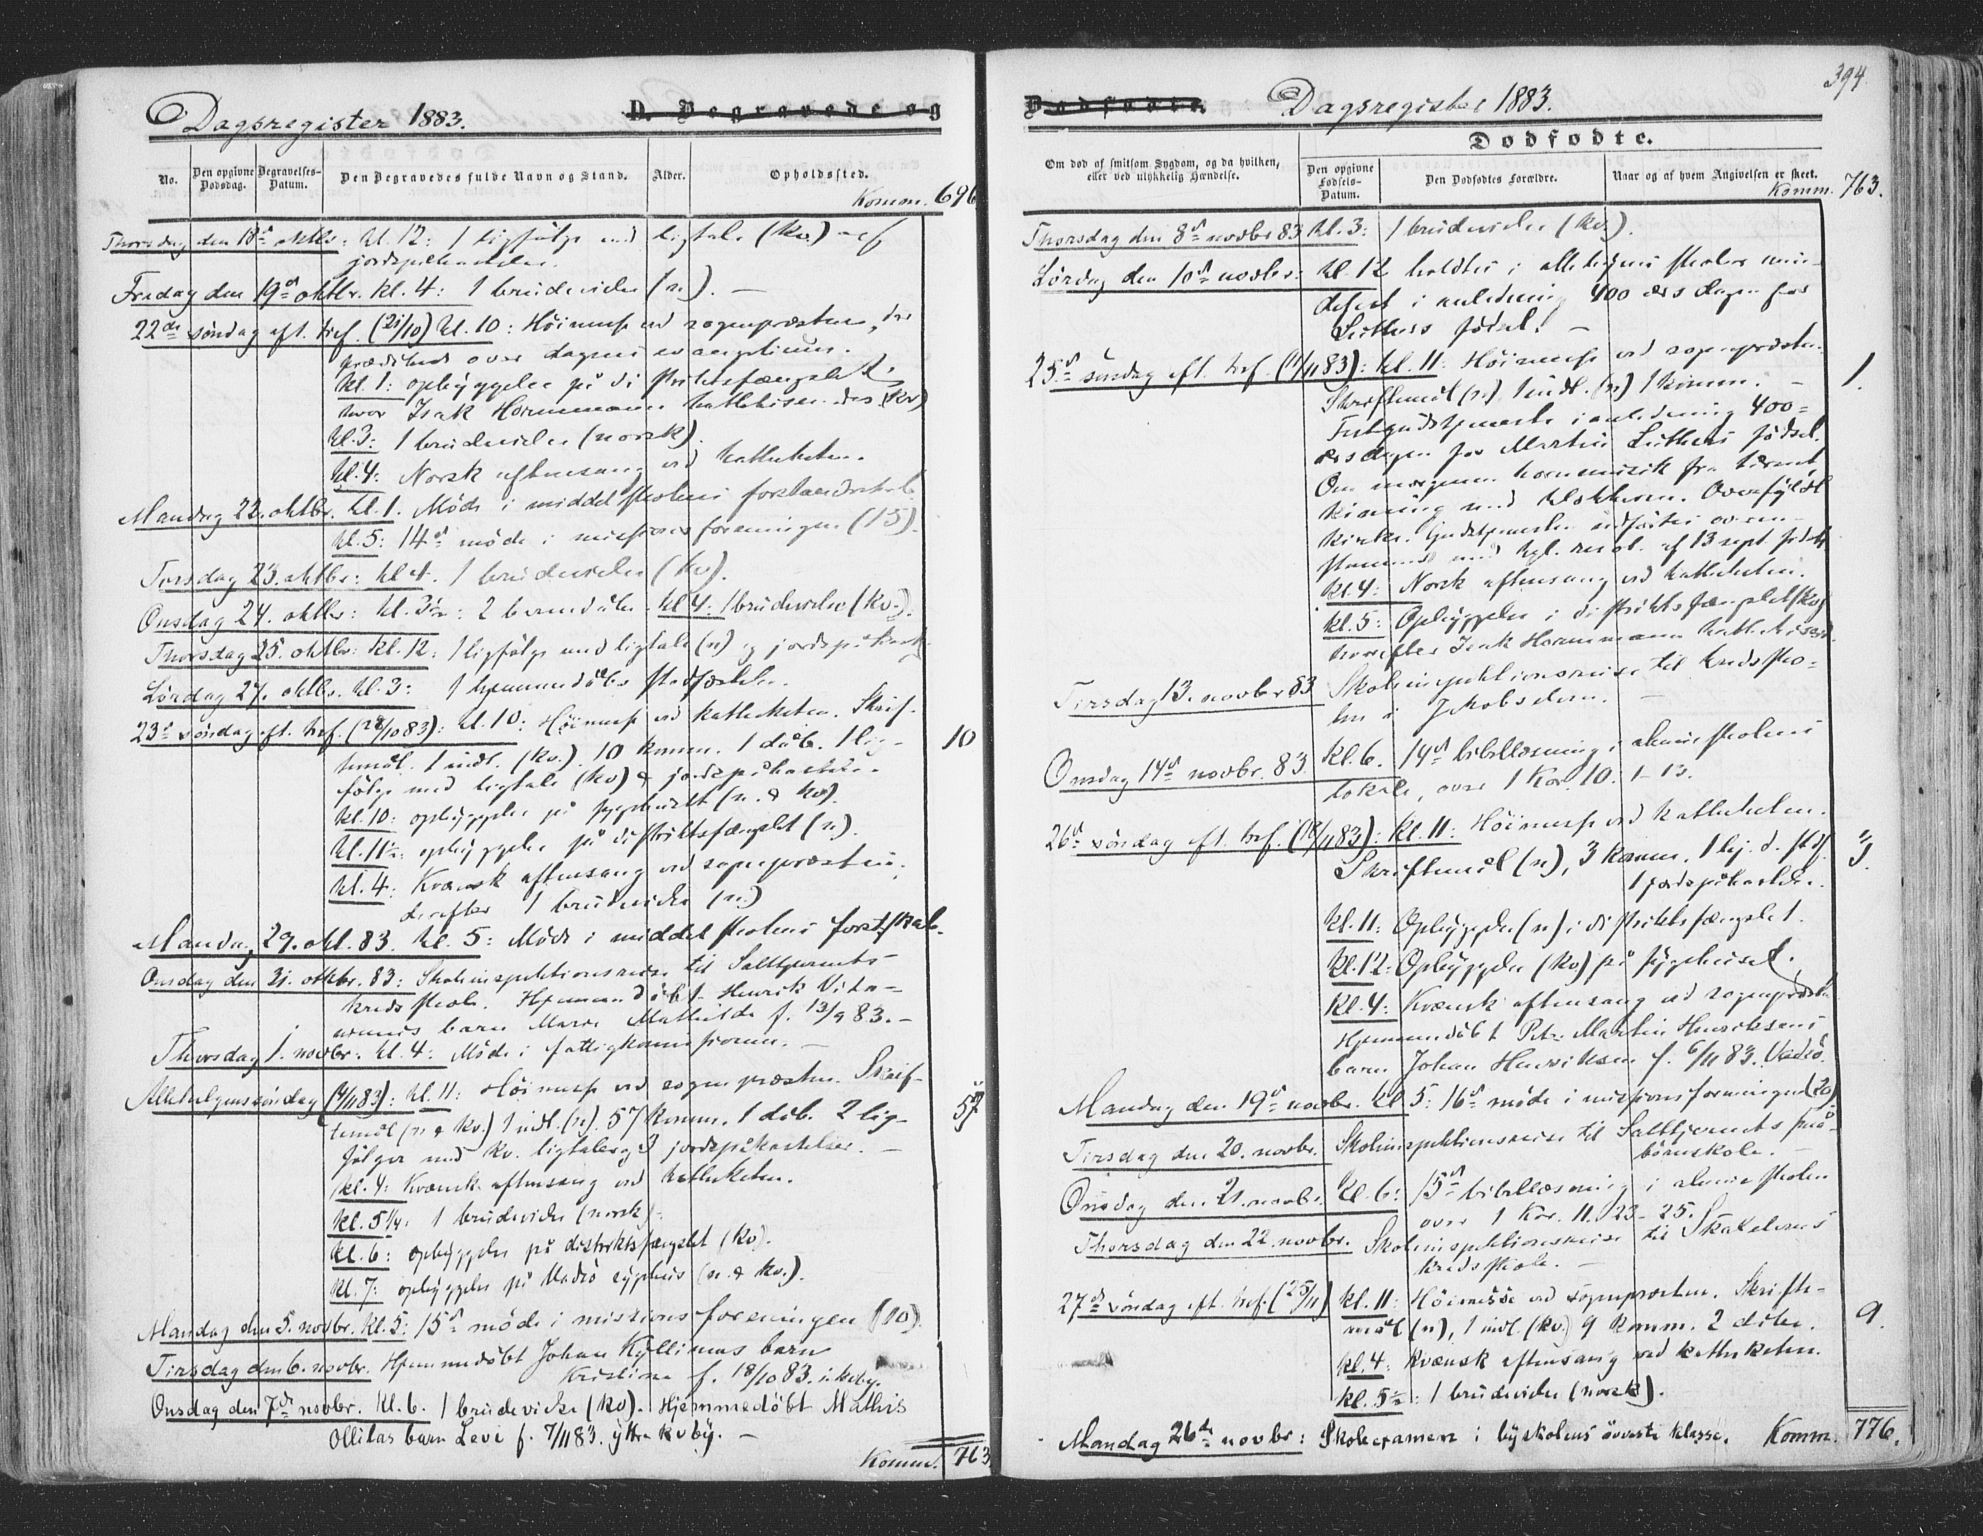 Dagsregister 1883.
D. Begravede og
No.
Den opgivne Dødsdag.
Begravelses-Datum.
Den Begravedes fulde Navn og Stand.
Alder.
Opholdssted.
Komm. 696
Thorsdag den 18de oktbr: kl. 12: 1 ligfølge med ligtale (kv.) og
jordspåkastelse.
Fredag den 19de oktbr. kl. 4: 1 brudevielse (n.). —
22de søndag eft. tref. (21/10) kl. 10: Høimesse ved sognepræsten, der
prædikede over dagens evangelium.
kl. 1: opbyggelse på distriktsfængslet,
hvor Isak Hornmann katekiseredes (kv)
kl. 3: 1 brudevielse (norsk).
kl. 4: Norsk aftensang ved katheketen.
Mandag 22. oktbr. kl. 1. Møde i middelskolens forstanderskab
kl. 5: 14de møde i missionsforeningen (15).
Tirsdag 23. oktbr: kl. 4. 1 brudevielse (kv).
Onsdag 24. oktbr: kl. 3½: 2 barnedåbe. kl. 4: 1 brudevielse (kv.).
Thorsdag 25. oktbr: kl. 12: 1 ligfølge med ligtale (n) og jordspåkast.
Lørdag 27. oktbr. kl. 3: 1 hjemmedåbs stadfæstelse.
23de søndag eft. tref. (28/10 83): kl. 10: Høimesse ved katheketen. Skrif-
temål. 1 indl. (kv.). 10 komm. 1 dåb. 1 lig-
følge med ligtale (kv) & jordspåkastelse.
10
kl. 10: opbyggelse på sygehuset (n. & kv).
kl. 11½: opbyggelse på distriktsfængslet (n).
kl. 4: Kvænsk aftensang ved sognepræsten,
derefter 1 brudevielse (n.)
Mandag 29. okt. 83. kl. 5: Møde i middelskolens forstskab.
Onsdag den 31. oktbr. 83: Skoleinspektionsreise til Saltjernets
kredsskole. Hjemmedøbt Henrik
barn Marie Mathilde f. 13/9 83. —
Thorsdag 1. novbr: kl. 4: Møde i fattigkommissionen. —
Allehelgenssøndag (4/11 83): kl. 11: Høimesse ved sognepræsten. Skrif-
temål (n & kv.) 1 indl. (n). 57 komm. 1 dåb. 2 lig-
følger med kv. ligtaler og 3 jordspåkastelser. —
57
kl. 4: Kvænsk aftensang ved katheketen.
kl. 5¼: 1 brudevielse (norsk).
kl. 6: opbyggelse på distriktsfængslet (kv).
kl. 7: opbyggelse på Vadsö sygehus (n. & kv.).
Mandag den 5. novbr. kl. 5: 15de møde i missionsforeningen (10).
Tirsdag den 6. novbr. Hjemmedøbt Johan Kyllines barn
Kristine f. 18/10 83.
Onsdag den 7de novbr. kl. 6. 1 brudevielse (kv). Hjemmedøbt Mathis
Ollilas barn Levi f. 7/11 83. yttre kvby. —
Komm. 763
394
Dødfødte.
Dagsregister 1883.
Dødfødte.
Om død af smitsom Sygdom, og da hvilken, eller ved ulykkelig Hændelse.
Den opgivne Fødsels-Datum.
Den Dødfødtes Forældre.
Naar og af hvem Angivelsen er skeet.
Komm. 763.
Thorsdag den 8de novbr 83 kl. 3: 1 brudevielse (kv).
Lørdag den 10de novbr: kl. 12 holdtes i allebyens skoler min-
defest i anledning 400 årsdagen for
Luthers fødsel. —
25de søndag eft. tref. (11/11 83): kl. 11: Høimesse ved sognepræsten.
Skriftemål (n) 1 indl. (n) 1 komm. —
1.
Festgudstjeneste i anledning 400-
årsdagen for Martin Luthers fødsel.
Om morgenen hornmusik fra tårnet
kimning med klokkerne. Overfyldt
kirke. Gudstjenesten udførtes overen-
stemmende med kgl. resol. af 13 sept.
kl. 4: Norsk aftensang ved katheketen.
kl. 5: Opbyggelse i distriktsfængslet (kv)
hvorefter Isak Hornmann
Tirsdag 13. novber 83 Skoleinspektionsreise til kredssko-
len i Jakobselven. —
Onsdag 14de novbr. 83 kl. 6. 14de bibellæsning i almueskolens
lokale, over 1 Kor. 10. 1-13.
26de søndag eft. tref. (18/11 83): kl. 11: Høimesse ved katheketen.
Skriftemål (n), 3 komm. 1 hj. d. stdf.
3.
1 jordspåkastelse.
kl. 11: Opbyggelse (n) i distriktsfængslet.
kl. 12: Opbyggelse (kv) på sygehuset.
kl. 4: Kvænsk aftensang ved sognepræsten
Hjemmedøbt Petr. Martin Henriksens
barn Johan Henriksen f. 6/11 83. Vadsö.
Mandag den 19de novbr. kl. 5: 16de møde i missionsforeningen (20)
Tirsdag den 20. novbr. Skoleinspektionsreise til Saltjernets små-
børnskole. —
Onsdag den 21. novbr. kl. 6: 15de bibellæsning i almueskolen
over 1 Kor. 11. 23-25.
Thorsdag den 22. novbr. Skoleinspektionsreise til Skallens
kredsskole. —
27de søndag eft. tref. (25/11) kl. 11: Høimesse ved sognepræsten. Skrifte-
mål (n), 1 indl. (kv.) 9 komm. 2 dåbe.
9.
kl. 4: kvænsk aftensang ved katheketen.
kl. 5½: 1 brudevielse (norsk).
Mandag 26de novbr: Skoleexamen i byskolens øverste klasse. Komm. 776.